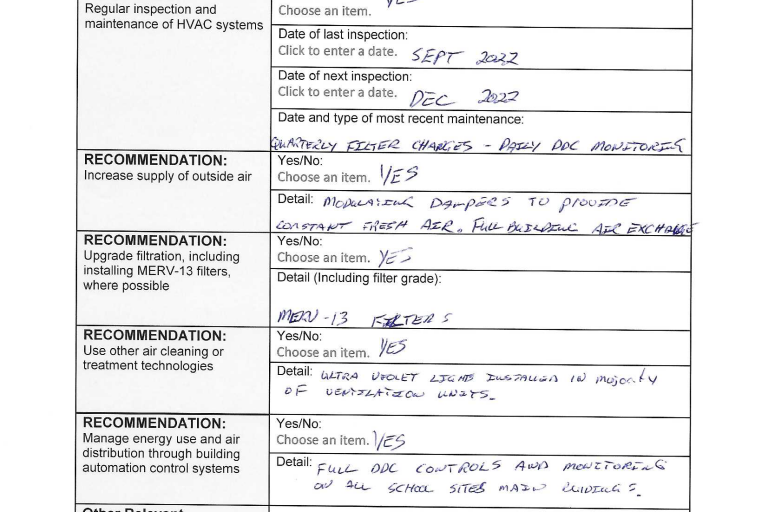 Regular inspection and
maintenance of HVAC systems
Choose an item. YES
Date of last inspection:
Click to enter a date. SEPT 2022
Date of next inspection:
Click to enter a date. DEC 2022
Date and type of most recent maintenance:
QUARTERLY FILTER CHANGES - DAILY DDC MONITORING
RECOMMENDATION:
Increase supply of outside air
Yes/No:
Choose an item. YES
Detail: MODULATING DAMPERS TO PROVIDE
CONSTANT FRESH AIR. FULL BUILDING AIR EXCHANGE
RECOMMENDATION:
Upgrade filtration, including
installing MERV-13 filters,
where possible
Yes/No:
Choose an item. YES
Detail (Including filter grade):
MERV-13 FILTERS
RECOMMENDATION:
Use other air cleaning or
treatment technologies
Yes/No:
Choose an item. YES
Detail: ULTRA VIOLET LIGHTS INSTALLED IN majority
OF VENTILATION UNITS.
RECOMMENDATION:
Manage energy use and air
distribution through building
automation control systems
Yes/No:
Choose an item. YES
Detail: FULL DDC CONTROLS AND MONITORING
ON ALL SCHOOL SITES MAIN
Other Relevant